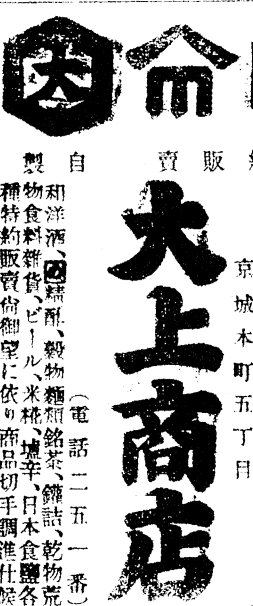 販賣
自製
大
京城本町五丁目
大上商店
(電話二五一番)
和洋酒、精酢、穀物麵類銘茶、罐詰、乾物荒
物食料雜貨、ビール、米糀、塩辛、日本食鹽各
種特約販賣尚御望に依り商品切手調進仕候